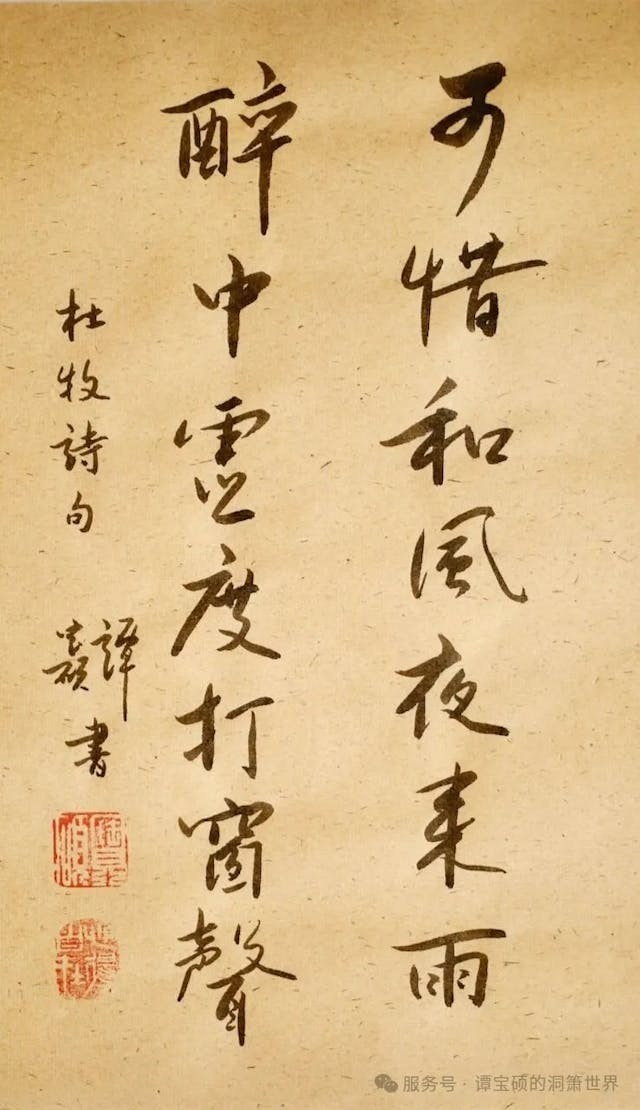 可惜和風夜来雨
醉中虚度打窗聲
杜牧詩句
譚寶碩書
服务号·谭宝硕的洞箫世界